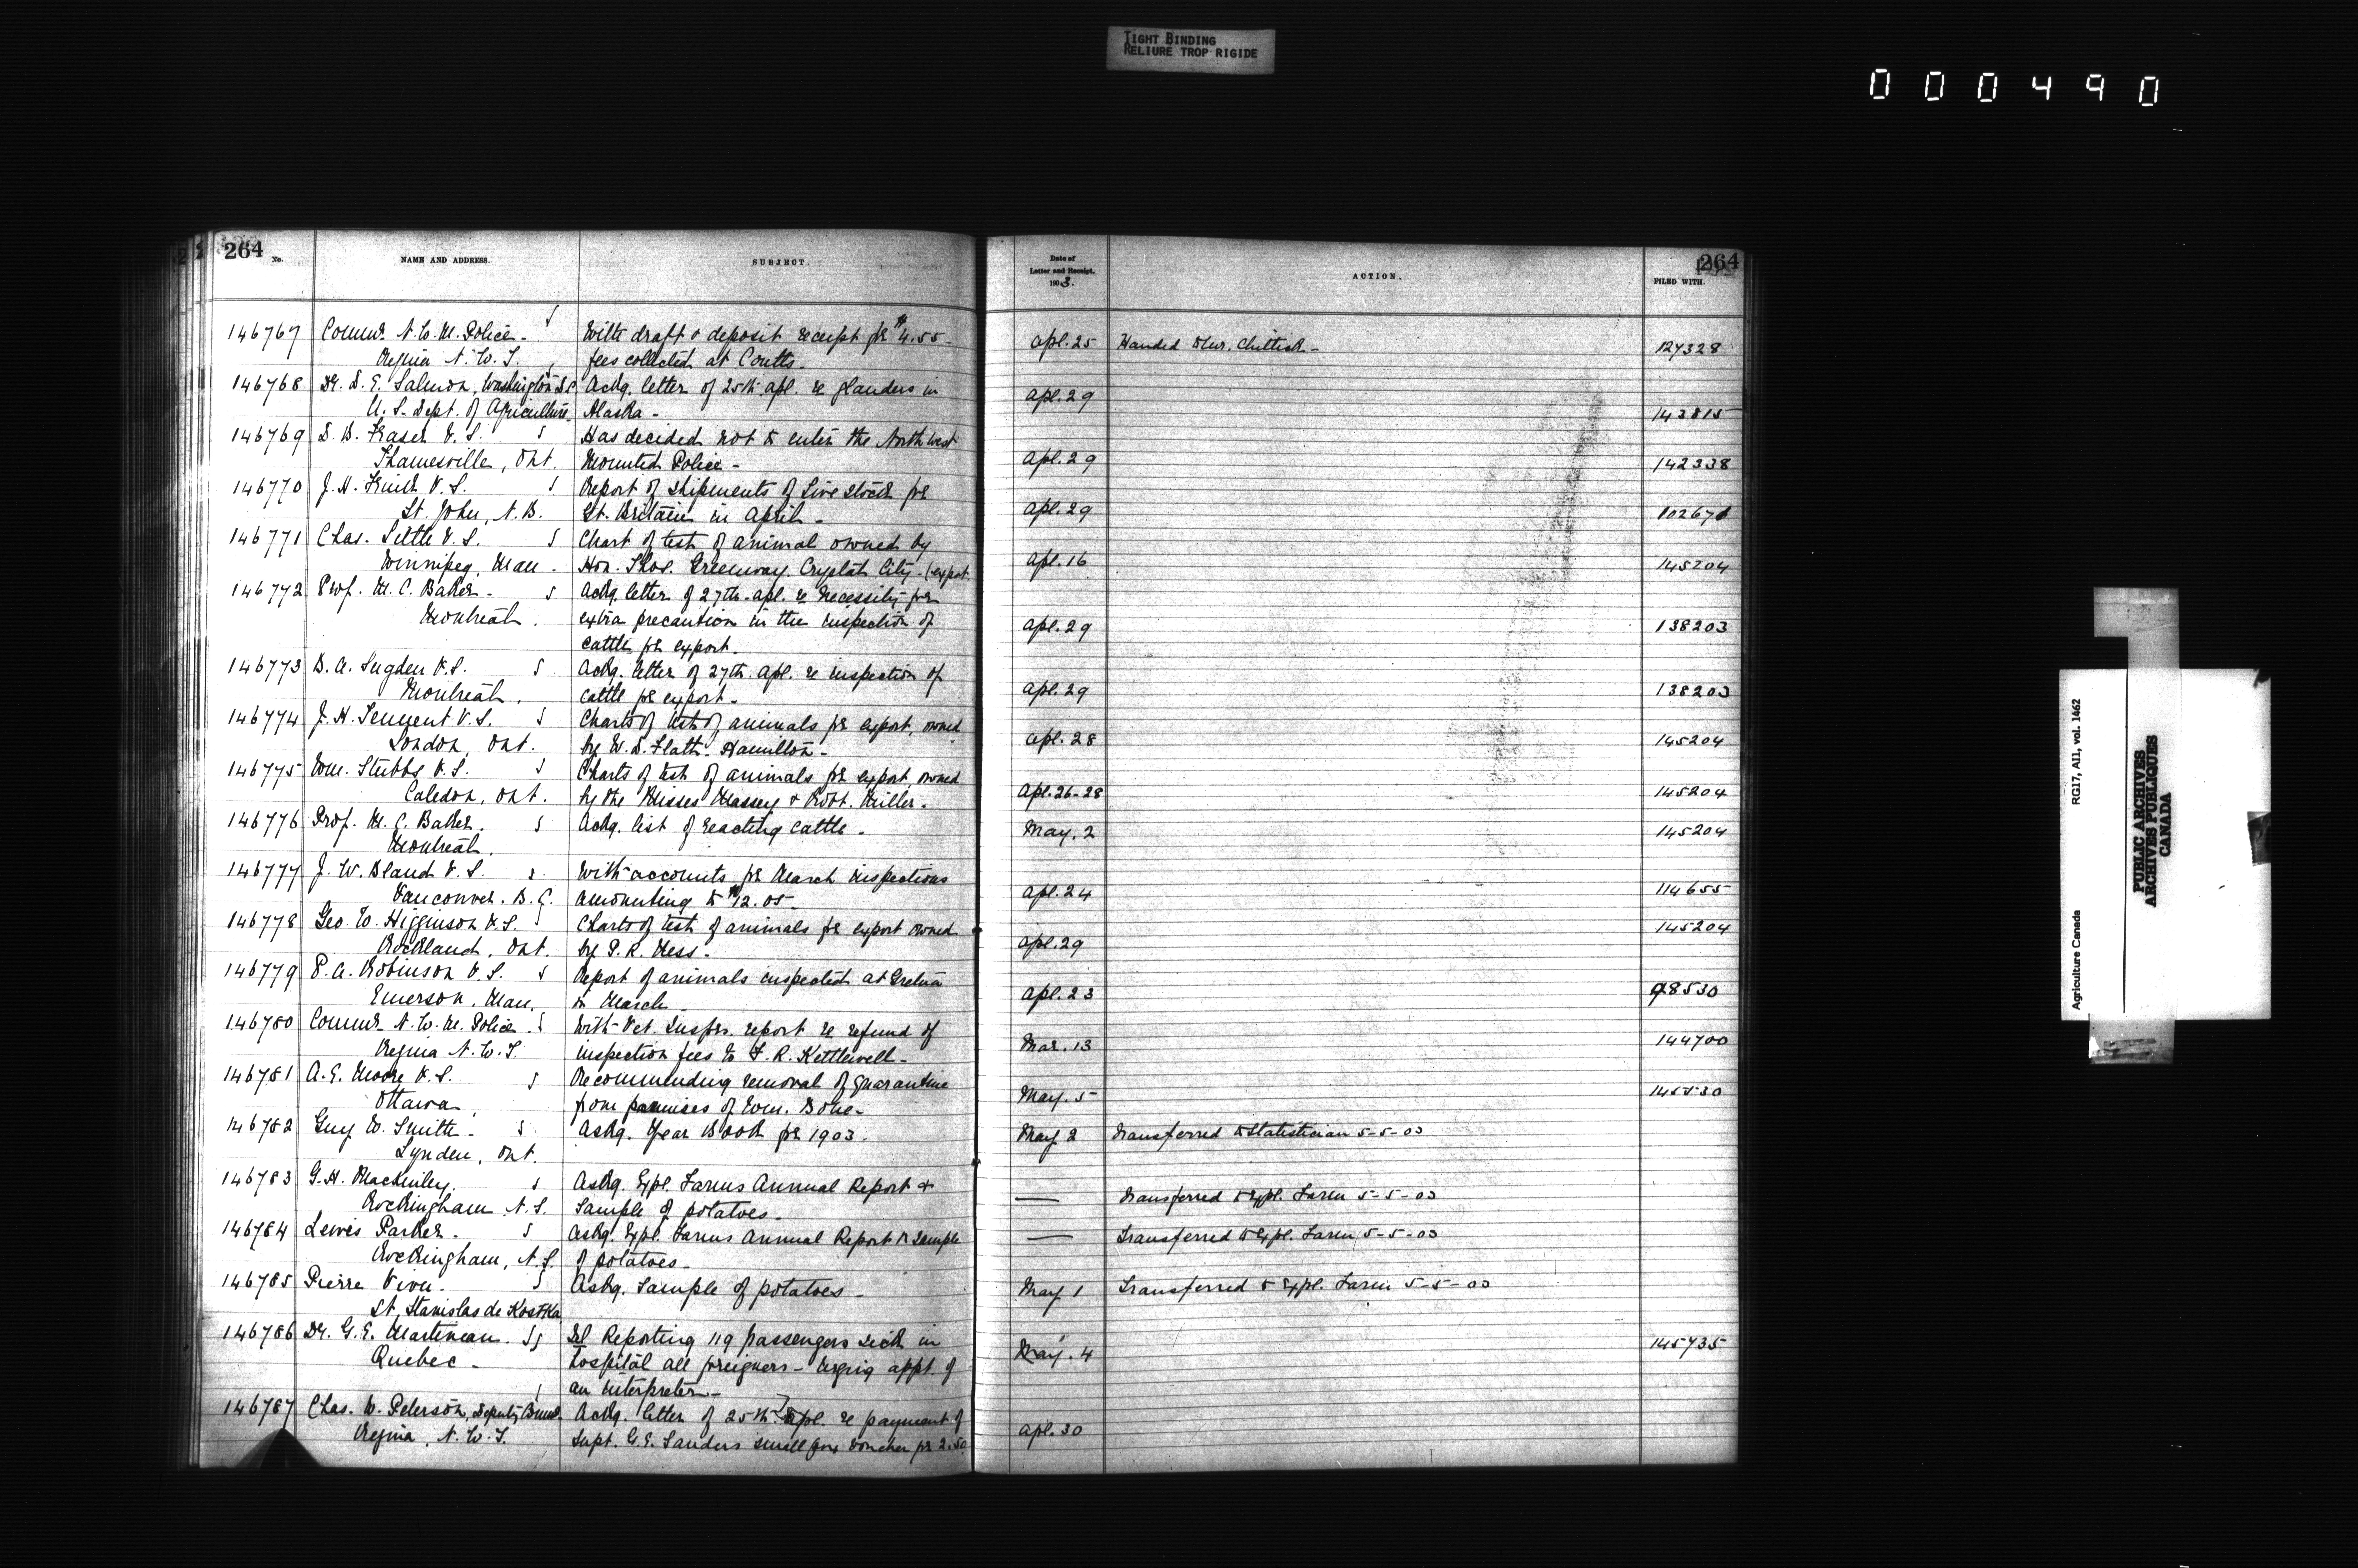 TIGHT BINDING
RELIURE TROP RIGIDE
000490
264
No.
NAME AND ADDRESS.
SUBJECT.
Date of
Letter and Receipt.
1903.
ACTION.
264
FILED WITH.
146767 Commr N.W.M. Police - With draft & deposit receipt for $4.55 - Apl. 25 Handed to Mr. Chittick - 127328
Regina N.W.T. fees collected at Coutts -
146768 Dr. D. E. Salmon, Washington D.C. Ackg. letter of 25th Apl. re glanders in Apl. 29
U.S. Dept. of Agriculture Alaska - 143815
146769 D. B. Fraser V.S. Has decided not to enter the North West
Thamesville, Ont. Mounted Police - Apl. 29 142338
146770 J. H. Frink V.S. Report of shipments of Live Stock for
St. John, N.B. Gt. Britain in April - Apl. 29 102671
146771 Chas. Little V.S. Chart of test of animal owned by
Winnipeg, Man. Hon. Thos. Greenway. Crystal City - (export. Apl. 16 145204
146772 Prof. M. C. Baker - Ackg. letter of 27th Apl. re necessity for
Montreal. extra precaution in the inspection of Apl. 29 138203
cattle for export -
146773 B. A. Sugden V.S. Ackg. letter of 27th Apl. re inspection of
Montreal. cattle for export - Apl. 29 138203
146774 J. H. Tennent V.S. Charts of test of animals for export, owned
London, Ont. by W. D. Flatt - Hamilton - Apl. 28 145204
146775 Wm. Stubbs V.S. Charts of test of animals for export, owned
Caledon, Ont. by the Misses Massey & Robt. Miller - Apl. 26-28 145204
146776 Prof. M. C. Baker. Ackg. list of reacting cattle - May. 2 145204
Montreal.
146777 J. W. Bland V.S. With accounts for March inspections
Vancouver. B.C. amounting to $12.05 - Apl. 24 114655
146778 Geo. W. Higginson V.S. Charts of test of animals for export owned 145204
Rockland, Ont. by P. R. Hess - Apl. 29
146779 P. A. Robinson V.S. Report of animals inspected at Gretna
Emerson, Man. in March - Apl. 23 98530
146780 Commr N.W.M. Police. With Vet. Inspr. report re refund of
Regina N.W.T. inspection fees to F. R. Kettlewell - Mar. 13 144700
146781 A. E. Moore V.S. Recommending removal of quarantine
Ottawa from premises of Wm. - May. 5 145530
146782 Guy W. Smith - Askg. Year Book for 1903. May 2 Transferred to Statistician 5-5-03
Lynden, Ont.
146783 G. H. MacKinley. Askg. Expl. Farms Annual Report & — Transferred to Expl. Farm 5-5-03
Rockingham N.S. Sample of potatoes -
146784 Lewis Parker - Askg. Expl. Farms Annual Report & Sample — Transferred to Expl. Farm 5-5-03
Rockingham, N.S. of potatoes -
146785 Pierre - Askg. Sample of potatoes - May 1 Transferred to Expl. Farm 5-5-03
St. Stanislas de Kostka
146786 Dr. G. E. Martineau. Reporting 119 passengers sick in 145735
Quebec - hospital all foreigners - Urging appt. of May. 4
an interpreter -
146787 Chas. W. Peterson, Deputy Ackg. letter of 25th Apl. re payment of
Regina, N.W.T. Supt. G. E. Sanders small pox voucher for 2.50 Apl. 30
RG17, AII, vol. 1462
Agriculture Canada
PUBLIC ARCHIVES
ARCHIVES PUBLIQUES
CANADA